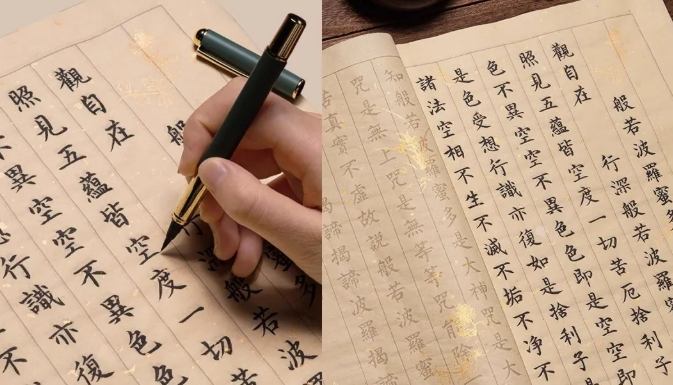 般
觀自在
深般若波
照見五蘊皆空度一切苦
不異空空不異色色
行識亦復
不
般若波羅蜜多
觀自在 行深般若波羅
照見五蘊皆空度一切苦厄捨利子
色不異空空不異色色即是空空
是色受想行識亦復如是捨利子
諸法空相不生不滅不垢不淨不
知般若波羅蜜多是大神咒是
咒是無上咒是無等等咒能除
苦真實不虛故說般若波羅蜜
諦揭諦波羅揭